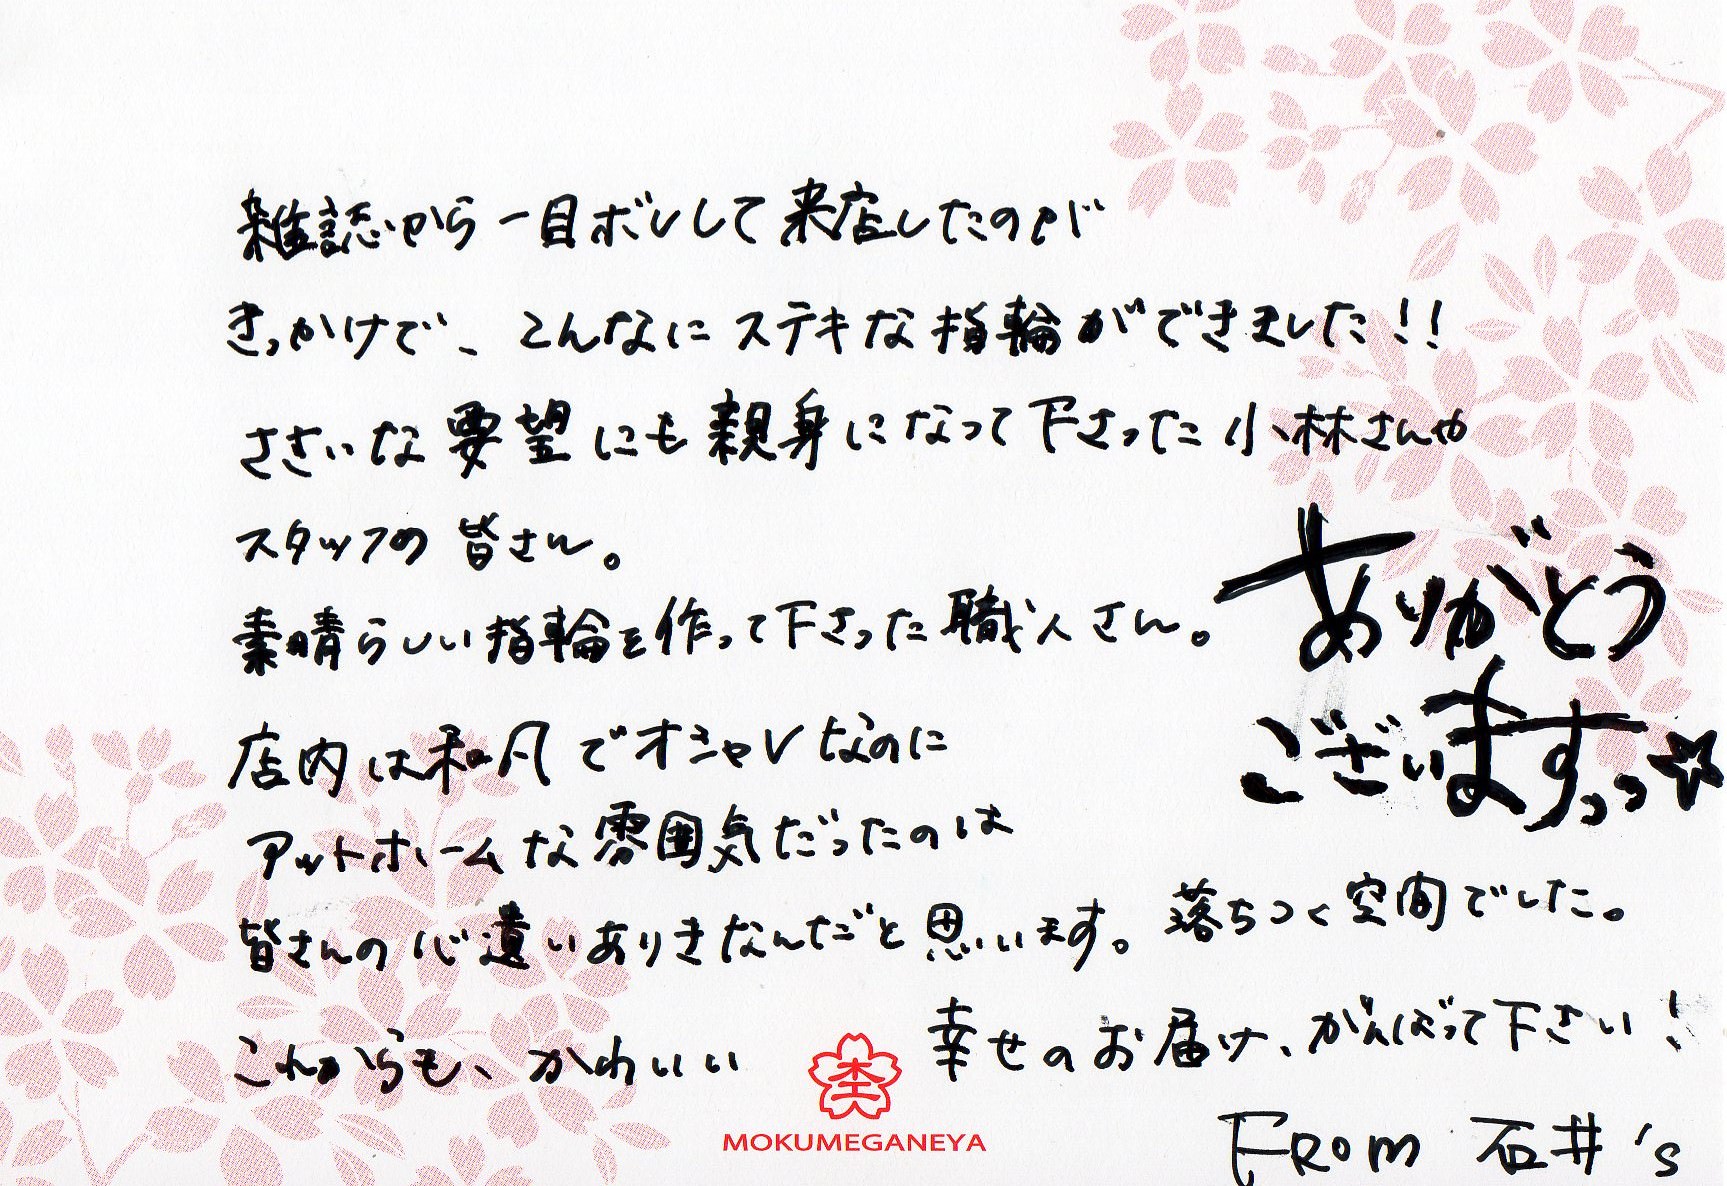 雑誌から一目ボレして来店したのが
きっかけで、こんなにステキな指輪ができました!!
ささいな要望にも親身になって下さった小林さんや
スタッフの皆さん。
素晴らしい指輪を作って下さった職人さん。
ありがとう
ございますっっ☆
店内は和風でオシャレなのに
アットホームな雰囲気だったのは
皆さんの心遣いありきなんだと思います。落ちつく空間でした。
これからも、かわいい幸せのお届け、がんばって下さい!
MOKUMEGANEYA
FROM 石井's